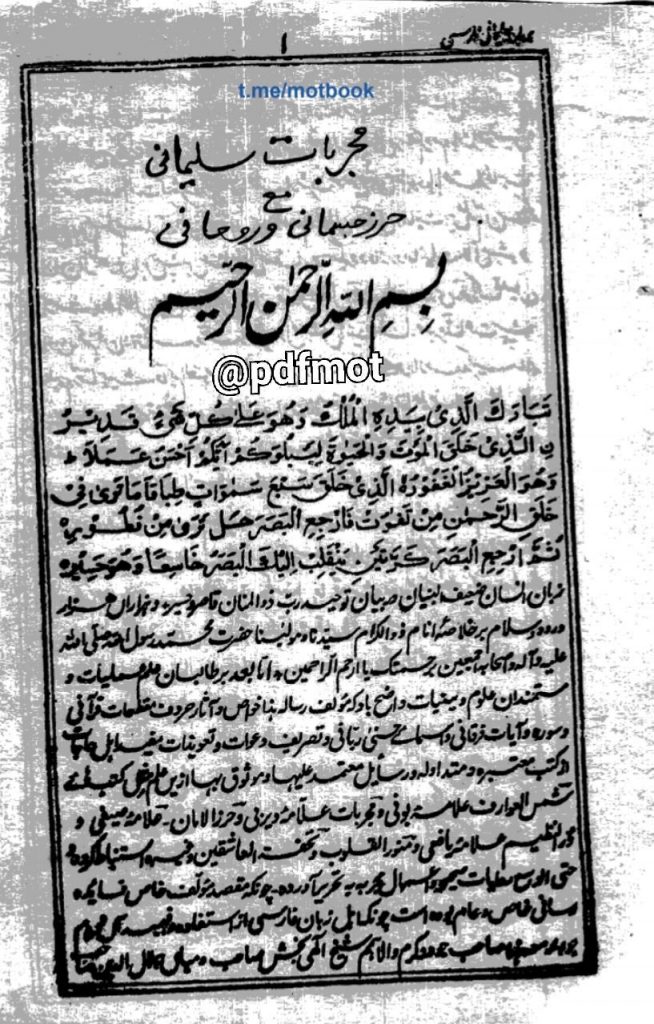 ۱
t.me/motbook
مجربات سلیمانی
مع
حرز جسمانی و روحانی
بِسمِ اللهِ الرَّحمٰنِ الرَّحِیم
@pdfmot
تَبَارَكَ الَّذِی بِیَدِهِ الْمُلْكُ وَهُوَ عَلٰی كُلِّ شَیْءٍ قَدِیْرُ
نِ الَّذِیْ خَلَقَ الْمَوْتَ وَالْحَیٰوةَ لِیَبْلُوَكُمْ اَیُّكُمْ اَحْسَنُ عَمَلًا
وَهُوَ الْعَزِیْزُ الْغَفُوْرُ الَّذِیْ خَلَقَ سَبْعَ سَمٰوَاتٍ طِبَاقًا مَا تَرٰی فِیْ
خَلْقِ الرَّحْمٰنِ مِنْ تَفَوُتٍ فَارْجِعِ الْبَصَرَ هَلْ تَرٰی مِنْ فُطُوْرٍ
ثُمَّ ارْجِعِ الْبَصَرَ كَرَّتَیْنِ یَنْقَلِبْ اِلَیْكَ الْبَصَرُ خَاسِئًا وَهُوَ حَسِیْرٌ
زبان انسان ضعیف البنیان توحید رب ذوالمنان قاصر و هزاران هزار
درود و سلام بر خلاصهٔ انام ذوالاکرام سیدنا و مولینا حضرت محمد رسول الله صلی الله
علیه و آله و اصحابه اجمعین برحمتک یا ارحم الراحمین اما بعد بر طالبان علم عملیات و
مستمندان علوم و واضح باد که مؤلف رساله هذا خواص و آثار حروف مقطعات قرآنی
و سوره و آیات فرقانی و اسمائے حسنی ربانی و تصریف دعوات و تعویذات
از کتب معتبره و متداوله و رسایل معتمد علیها و موثوق بها ازین علم
شمس المعارف علامه بونی و مجربات علامه دیربی و حرز الامان علامه صیفی و
در النظیم علامه یافعی و القلوب و تحفت العاشقین و غیره استنباط کرده
حتی الوسع عملیات صحیح و به تحریر آورده چونکه مقصد مؤلف خاص فایده
رسانی خاص و عام بوده است چونکه اهل زبان فارسی از استفاده
صاحب شیخ الهی بخش صاحب و میاں جلال الدین